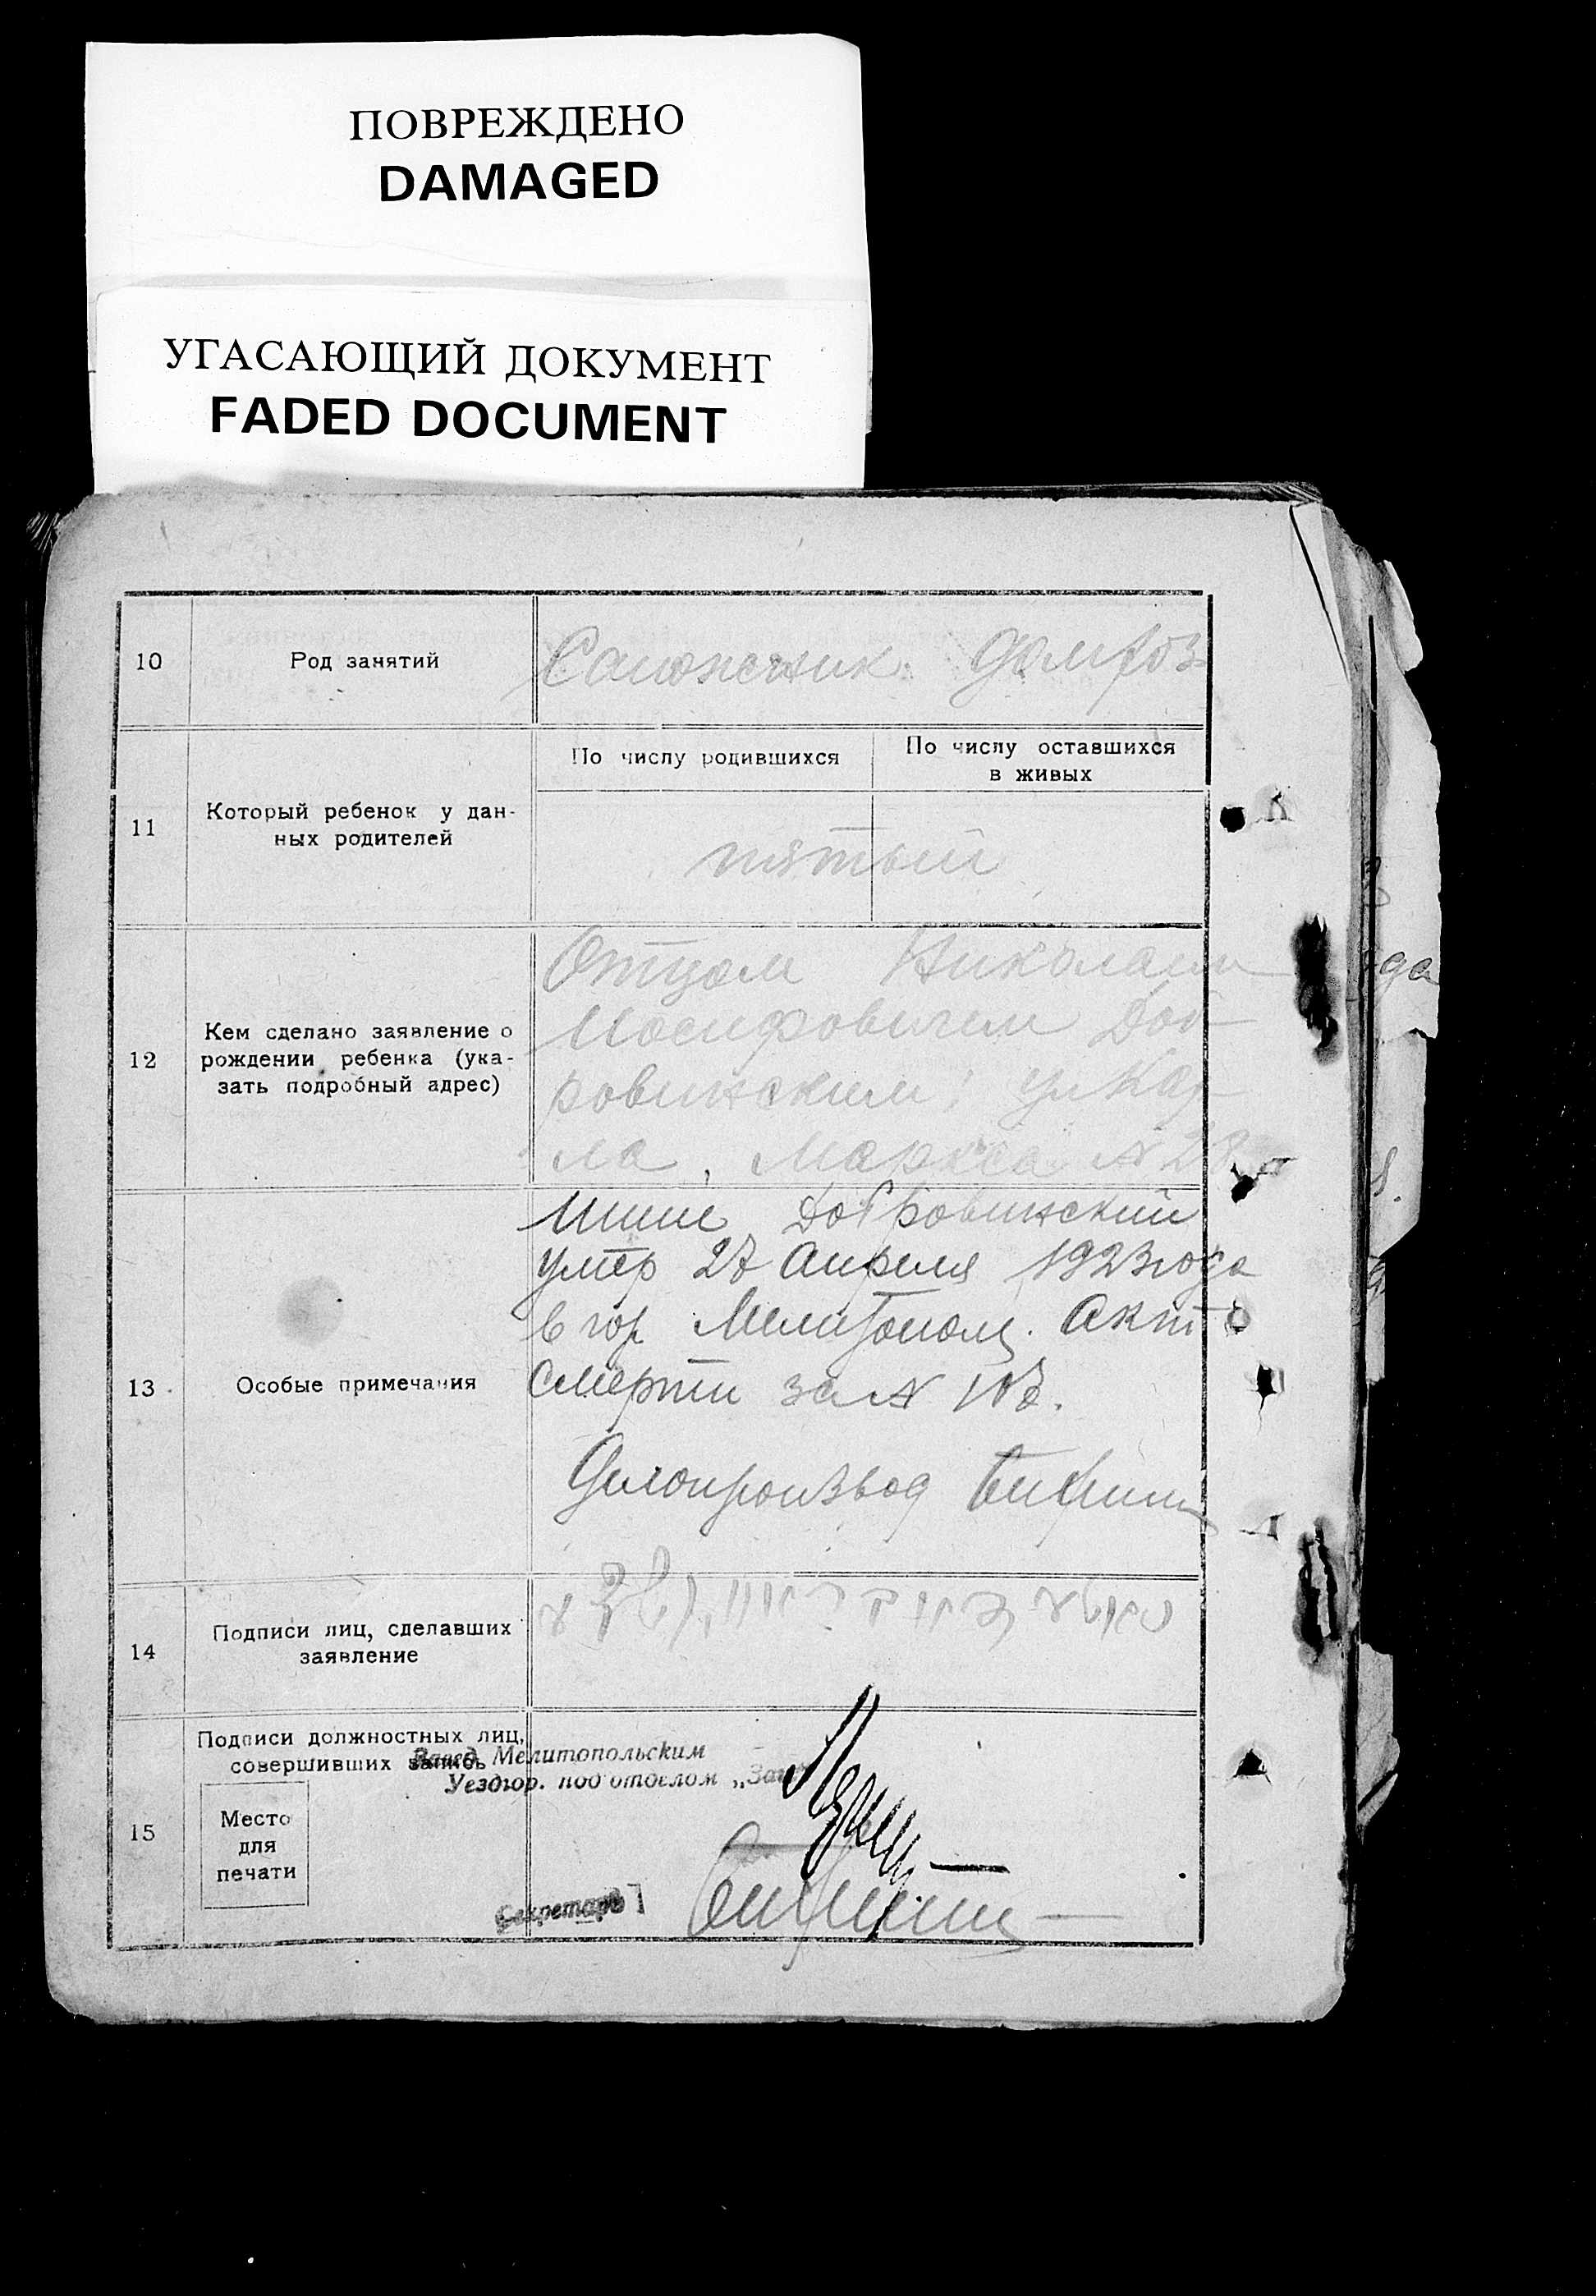 ПОВРЕЖДЕНО
DAMAGED
УГАСАЮЩИЙ ДОКУМЕНТ
FADED DOCUMENT
10
Род занятий
Сапожник
11
Который ребенок у дан-
ных родителей
По числу родившихся
По числу оставшихся
в живых
пятый
12
Кем сделано заявление о
рождении ребенка (ука-
зать подробный адрес)
Отцом Николаем
Иосифовичем Доб-
ровинским; ул Кар-
ла Маркса N
13
Особые примечания
Добровинский
умер 27 апреля 1923 года
в гор Акт о
смерти за N 107.
Делопроизвод
14
Подписи лиц, сделавших
заявление
15
Подписи должностных лиц,
совершивших запись
Завед. Мелитопольским
Уездгор. подотделом „Загс"
Место
для
печати
Секретарь